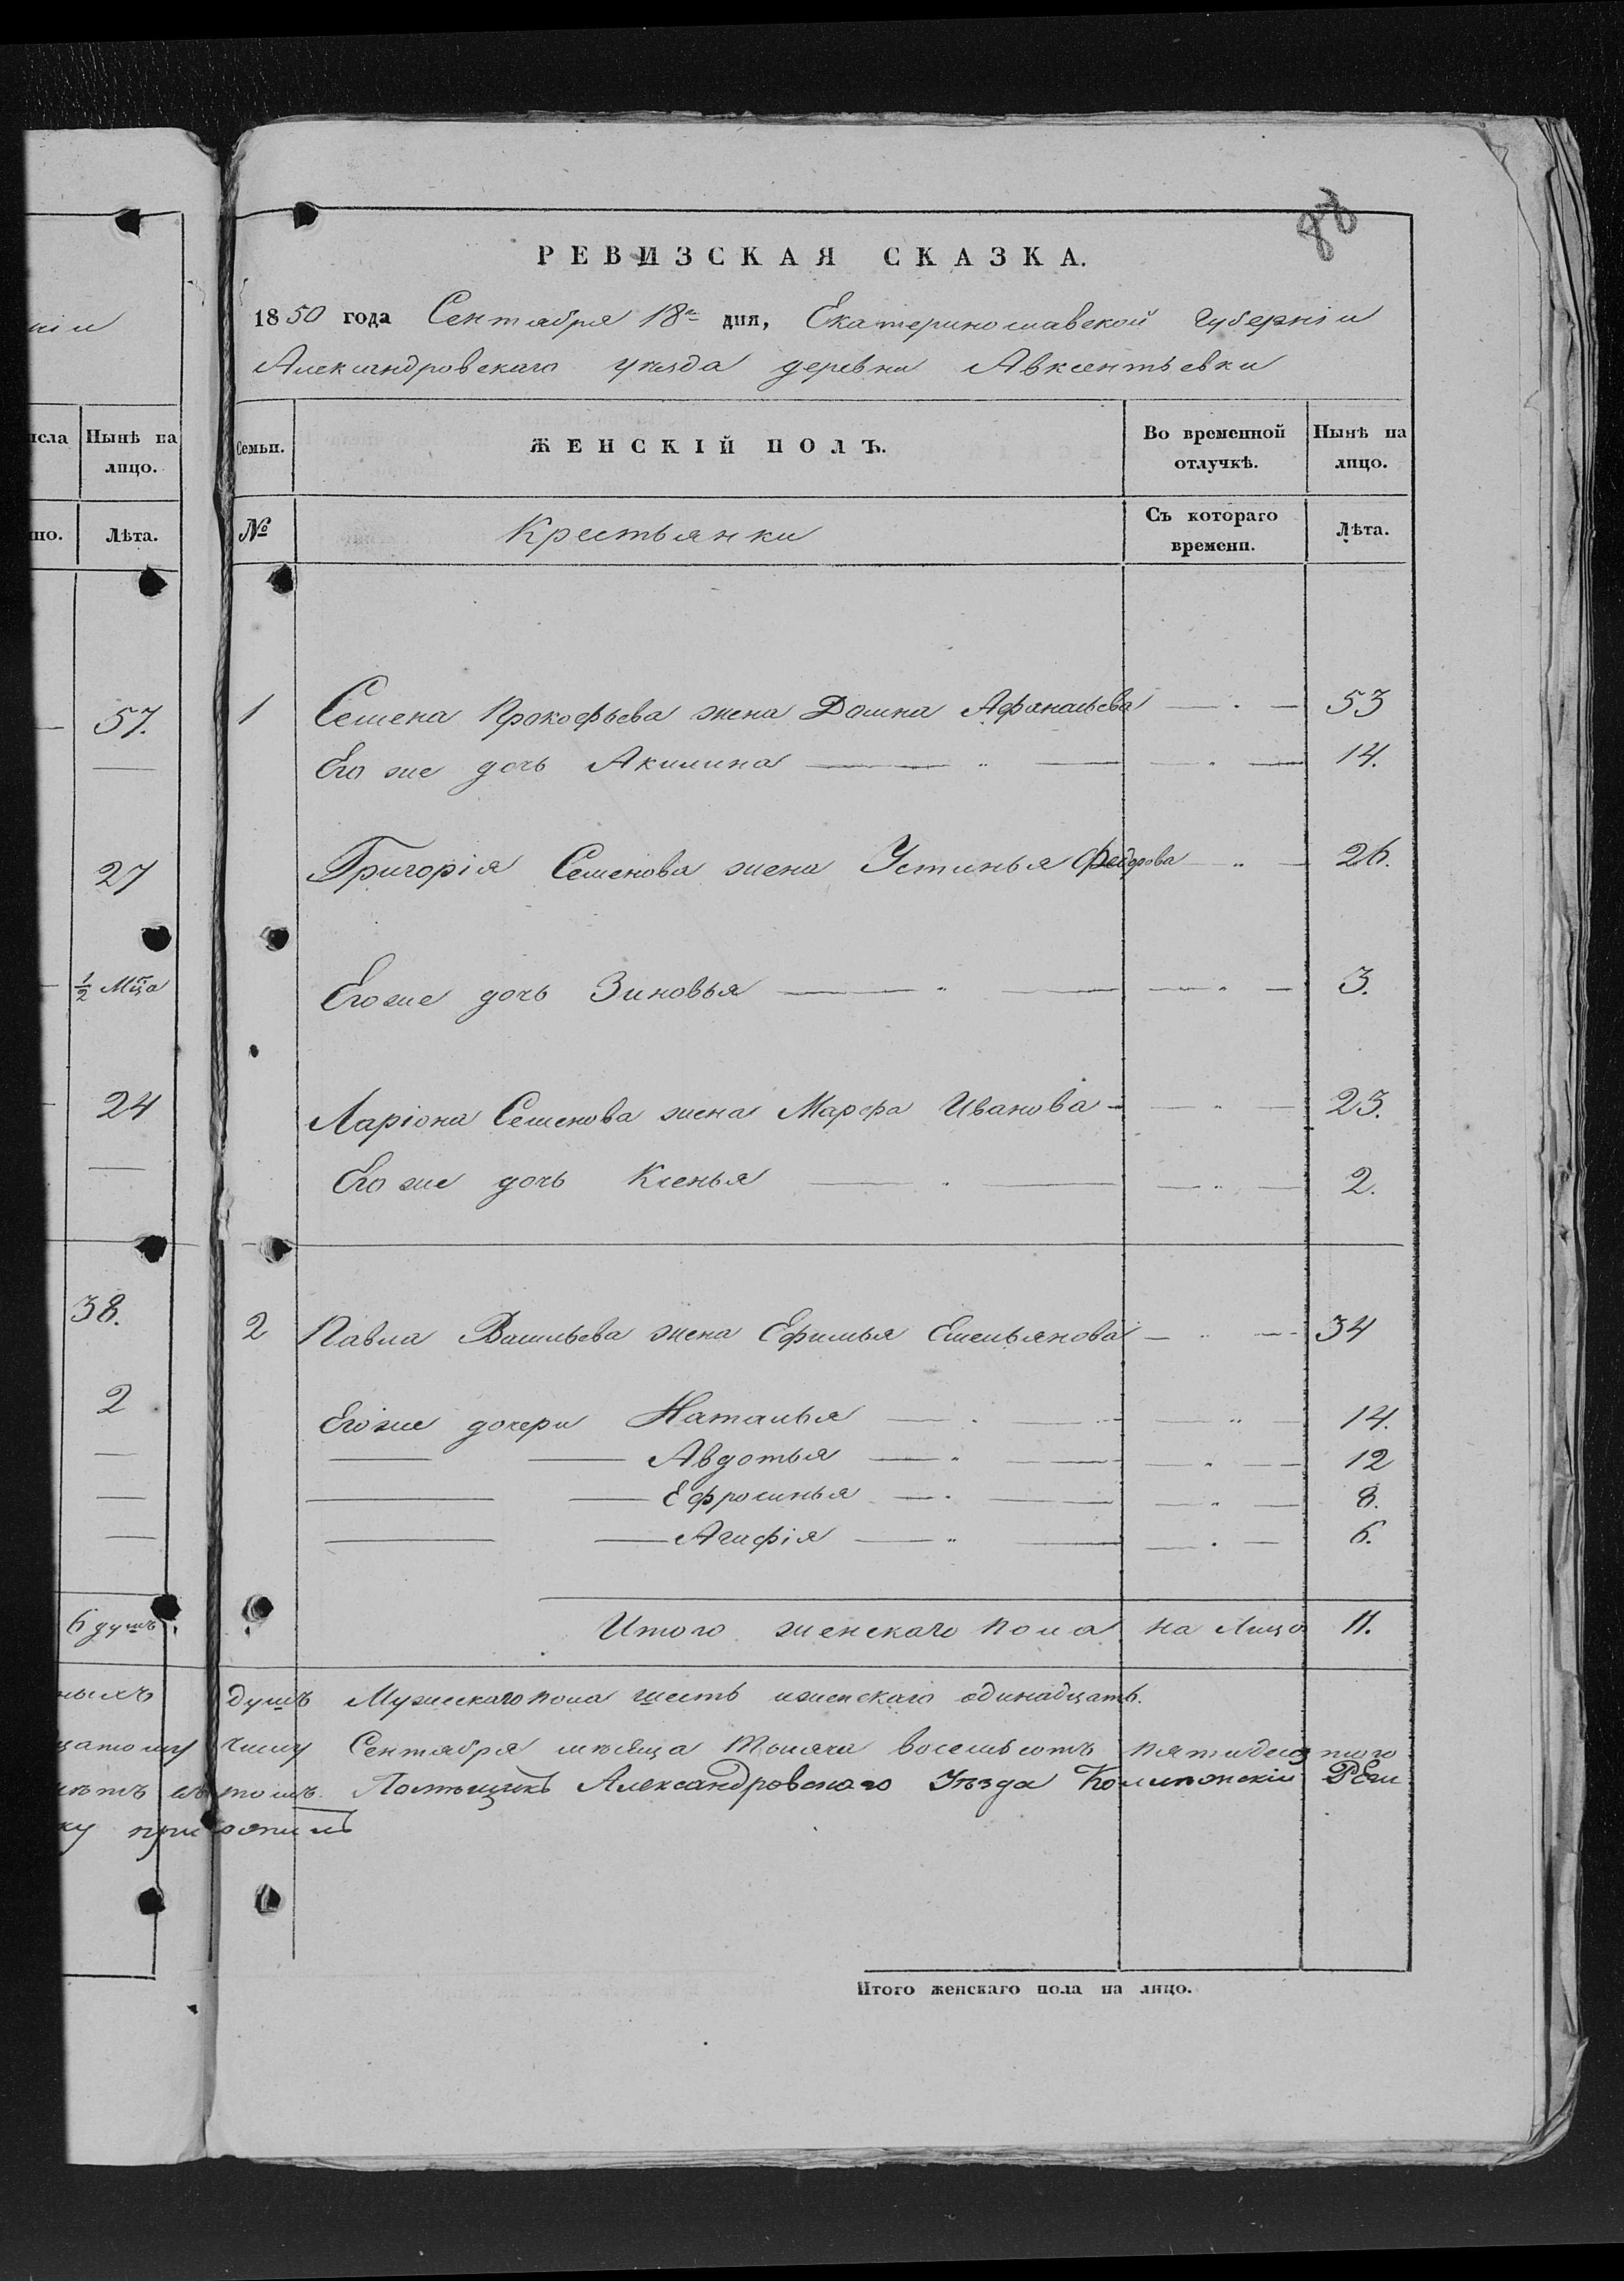 88
РЕВИЗСКАЯ СКАЗКА.
1850 года Сентября 18го дня, Екатеринославской Губерніи
Александровскаго уѣзда деревни Авксентьевки
Семьи. ЖЕНСКІЙ ПОЛЪ. Во временной отлучкѣ. Нынѣ на лицо.
№ Крестьянки Съ котораго времени. Лѣта.
1 Семена Прокофьева жена Домна Афанасьева — " — 53
Его же дочь Акилина — " — — " — 14.
Григорія Семенова жена Устинья Федорова — " — 26.
Егоже дочь Зиновья — " — — " — 3.
Ларіона Семенова жена Марфа Иванова — — " — 23.
Его же дочь Ксенья — " — — " — 2.
2 Павла Васильева жена Ефимья Емельянова — " — 34
Егоже дочери Наталья — " — — " — 14.
— — Авдотья — " — — " — 12
— — Ефросинья — " — — " — 8.
— — Агафія — " — — " — 6.
Итого женскаго пола на лицо 11.
душъ Мужескаго пола шесть и женскаго одинадцать.
числу Сентября мѣсяца тысяча восемьсотъ пятидесятого
въ томъ. Помѣщикъ Александровскаго Уѣзда
приложилъ
Итого женскаго пола на лицо.
ніи
исла Нынѣ на лицо.
но. Лѣта.
57.
27
½ Мца
24
38.
2
6 душъ.
ныхъ
цатому